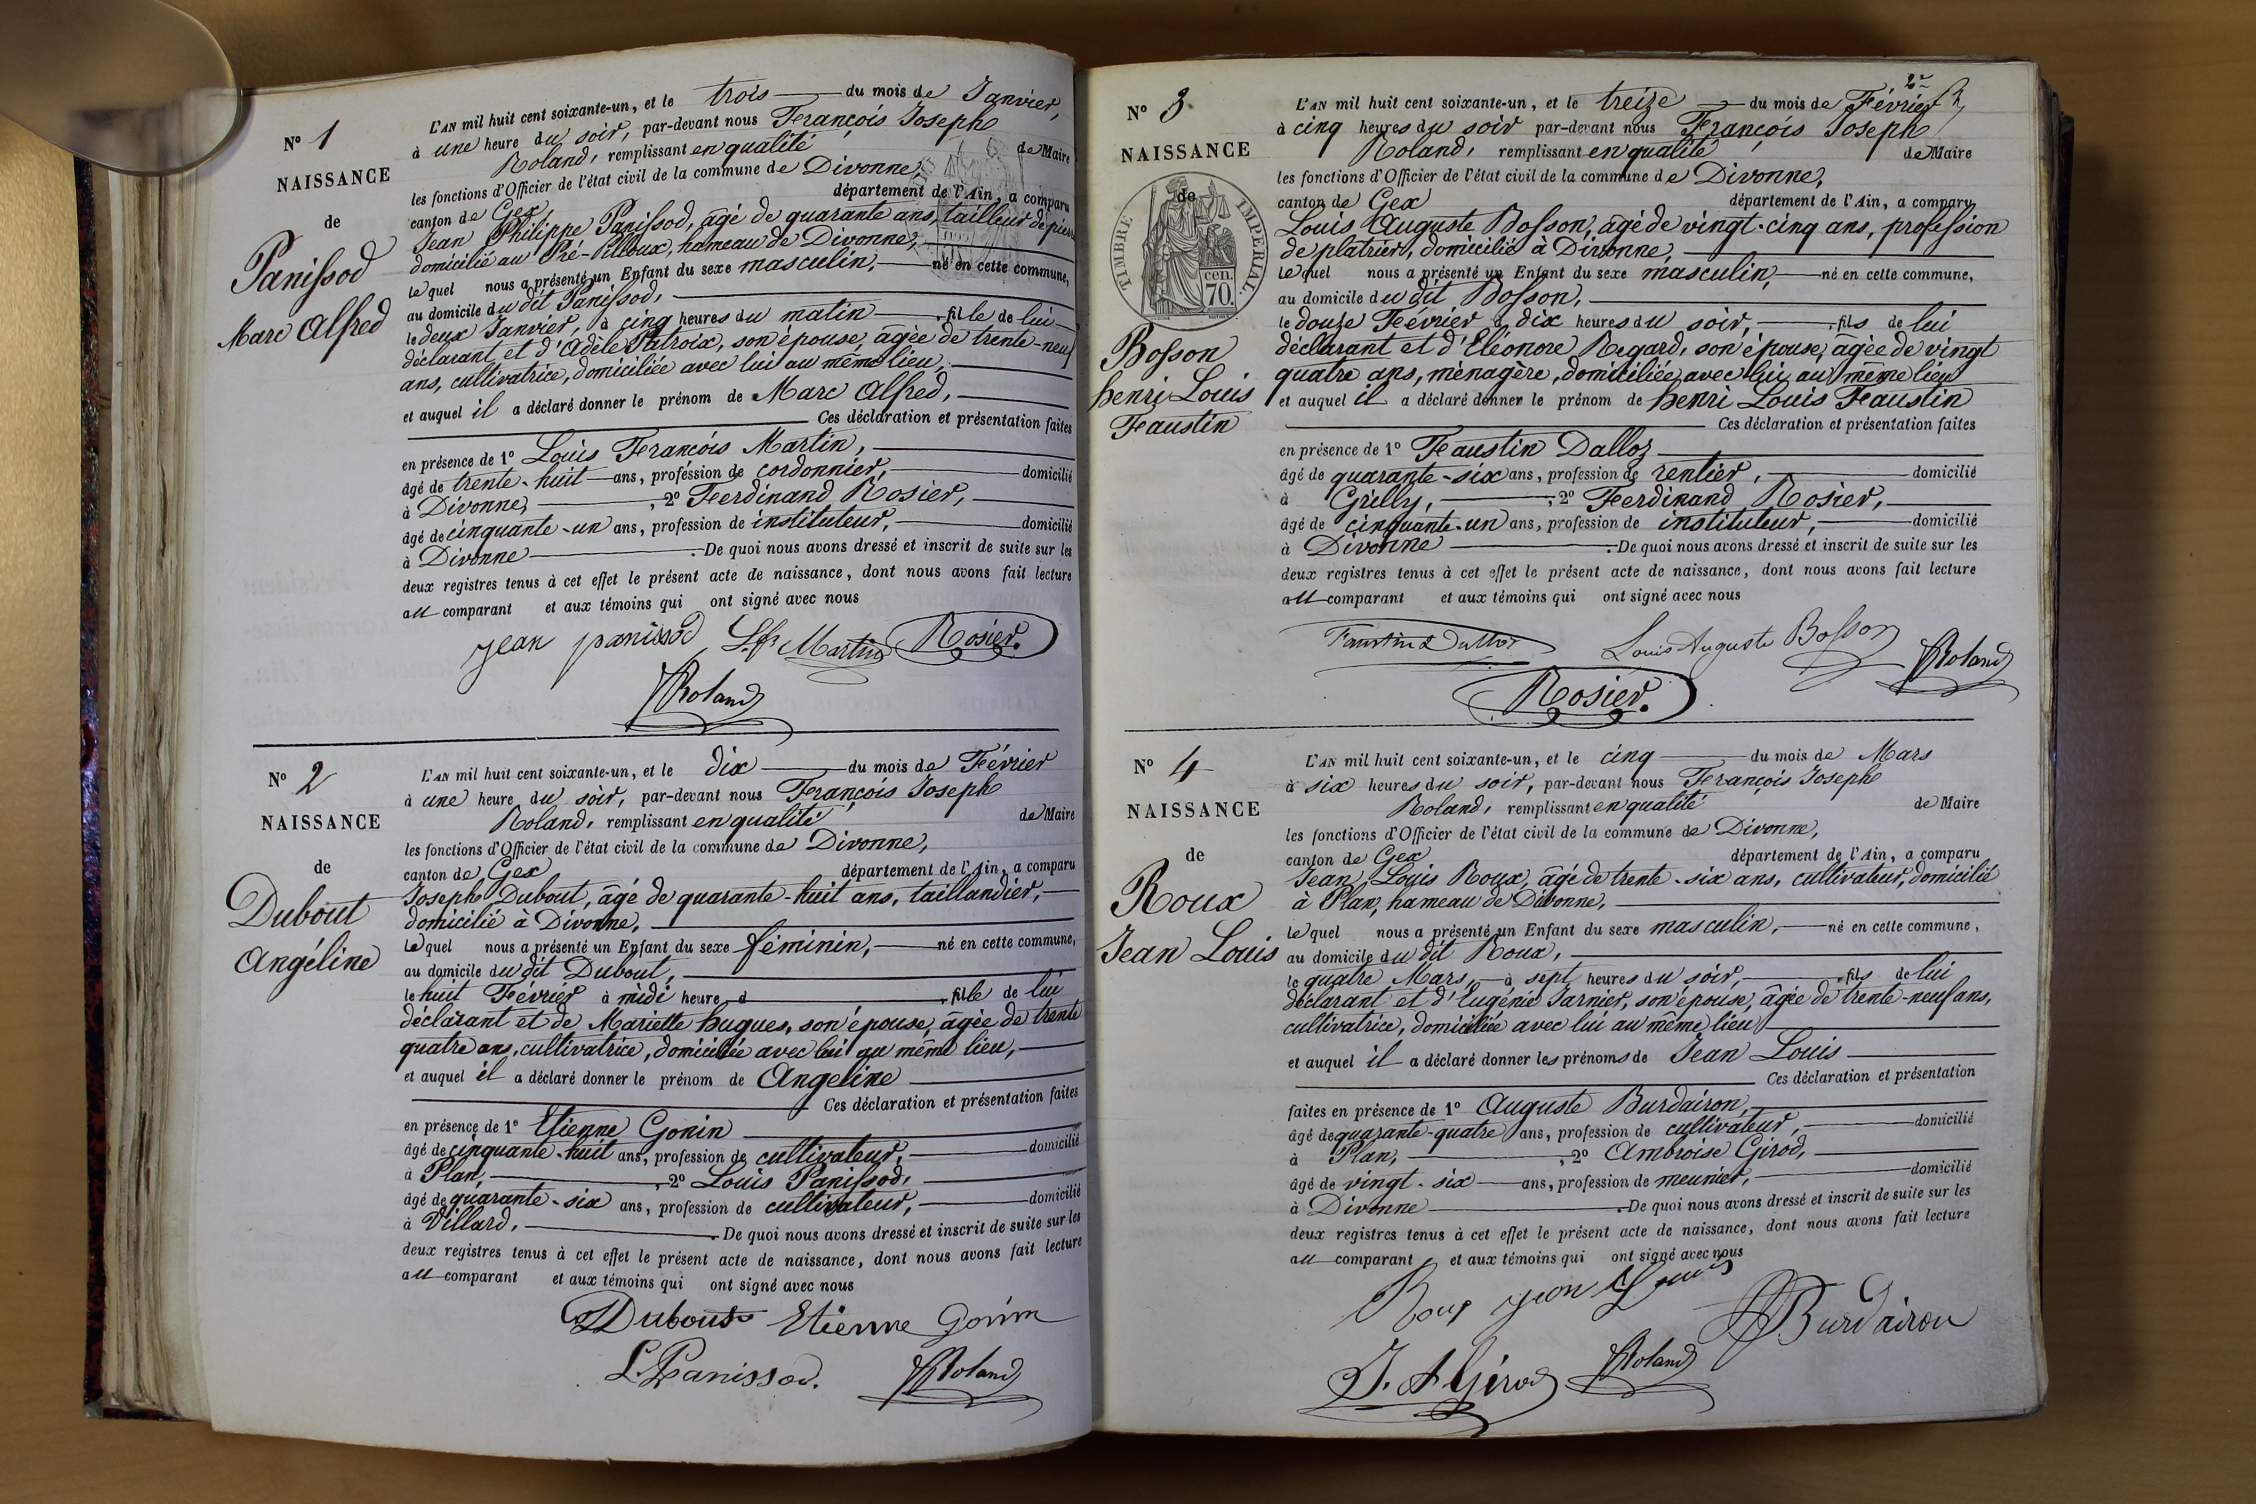 N° 1
NAISSANCE
de
Panissod
Marc Alfred
L'AN mil huit cent soixante-un, et le trois du mois de Janvier,
à une heure du soir, par-devant nous François Joseph
Roland, remplissant en qualité de Maire
les fonctions d'Officier de l'état civil de la commune de Divonne,
canton de Gex département de l'Ain, a comparu
Jean Philippe Panissod, âgé de quarante ans, tailleur de pierre
domicilié au Pré-Pilloux, hameau de Divonne,
lequel nous a présenté un Enfant du sexe masculin, né en cette commune,
au domicile du dit Panissod,
le deux Janvier, à cinq heures du matin, fille de lui
déclarant et d'Adèle Patroix, son épouse, âgée de trente-neuf
ans, cultivatrice, domiciliée avec lui au même lieu,
et auquel il a déclaré donner le prénom de Marc Alfred,
Ces déclaration et présentation faites
en présence de 1° Louis François Martin,
âgé de trente-huit ans, profession de cordonnier, domicilié
à Divonne, 2° Ferdinand Rosier,
âgé de cinquante-un ans, profession de instituteur, domicilié
à Divonne. De quoi nous avons dressé et inscrit de suite sur les
deux registres tenus à cet effet le présent acte de naissance, dont nous avons fait lecture
au comparant et aux témoins qui ont signé avec nous
jean panissod L. fs Martin Rosier.
Roland
N° 2
NAISSANCE
de
Dubout
Angéline
L'AN mil huit cent soixante-un, et le dix du mois de Février
à une heure du soir, par-devant nous François Joseph
Roland, remplissant en qualité de Maire
les fonctions d'Officier de l'état civil de la commune de Divonne,
canton de Gex département de l'Ain, a comparu
Joseph Dubout, âgé de quarante-huit ans, taillandier,
domicilié à Divonne,
lequel nous a présenté un Enfant du sexe féminin, né en cette commune,
au domicile du dit Dubout,
le huit Février à midi heure d , fille de lui
déclarant et de Mariette hugues, son épouse, âgée de trente
quatre ans, cultivatrice, domiciliée avec lui au même lieu,
et auquel il a déclaré donner le prénom de Angeline
Ces déclaration et présentation faites
en présence de 1° Etienne Gonin
âgé de cinquante-huit ans, profession de cultivateur, domicilié
à Plan, 2° Louis Panissod,
âgé de quarante-six ans, profession de cultivateur, domicilié
à Villard, De quoi nous avons dressé et inscrit de suite sur les
deux registres tenus à cet effet le présent acte de naissance, dont nous avons fait lecture
au comparant et aux témoins qui ont signé avec nous
Dubout Etienne Gonin
L. Panissod. Roland
2e
N° 3
NAISSANCE
de
TIMBRE IMPÉRIAL.
cen.
70.
Bosson
henri Louis
Faustin
L'AN mil huit cent soixante-un, et le treize du mois de Février
à cinq heures du soir par-devant nous François Joseph
Roland, remplissant en qualité de Maire
les fonctions d'Officier de l'état civil de la commune de Divonne,
canton de Gex département de l'Ain, a comparu
Louis Auguste Bosson, âgé de vingt-cinq ans, profession
de platrier, domicilié à Divonne,
lequel nous a présenté un Enfant du sexe masculin, né en cette commune,
au domicile du dit Bosson,
le douze Février à dix heures du soir, fils de lui
déclarant et d'Eléonore Regard, son épouse, âgée de vingt
quatre ans, ménagère, domiciliée avec lui au même lieu
et auquel il a déclaré donner le prénom de henri Louis Faustin
Ces déclaration et présentation faites
en présence de 1° Faustin Dalloz
âgé de quarante-six ans, profession de rentier, domicilié
à Grilly, 2° Ferdinand Rosier,
âgé de cinquante-un ans, profession de instituteur, domicilié
à Divonne. De quoi nous avons dressé et inscrit de suite sur les
deux registres tenus à cet effet le présent acte de naissance, dont nous avons fait lecture
au comparant et aux témoins qui ont signé avec nous
Faustin Dalloz Louis Auguste Bosson Roland
Rosier.
N° 4
NAISSANCE
de
Roux
Jean Louis
L'AN mil huit cent soixante-un, et le cinq du mois de Mars
à six heures du soir, par-devant nous François Joseph
Roland, remplissant en qualité de Maire
les fonctions d'Officier de l'état civil de la commune de Divonne,
canton de Gex département de l'Ain, a comparu
Jean Louis Roux, âgé de trente-six ans, cultivateur, domicilié
à Plan, hameau de Divonne,
lequel nous a présenté un Enfant du sexe masculin, né en cette commune,
au domicile du dit Roux,
le quatre Mars, à sept heures du soir, fils de lui
déclarant et d'Eugénie Jarnier, son épouse, âgée de trente-neuf ans,
cultivatrice, domiciliée avec lui au même lieu
et auquel il a déclaré donner les prénoms de Jean Louis
Ces déclaration et présentation
faites en présence de 1° Auguste Burdairon,
âgé de quarante-quatre ans, profession de cultivateur, domicilié
à Plan, 2° Ambroise Girod,
âgé de vingt-six ans, profession de meunier, domicilié
à Divonne. De quoi nous avons dressé et inscrit de suite sur les
deux registres tenus à cet effet le présent acte de naissance, dont nous avons fait lecture
au comparant et aux témoins qui ont signé avec nous
Roux jean Louis Burdairon
J. A Girod Roland